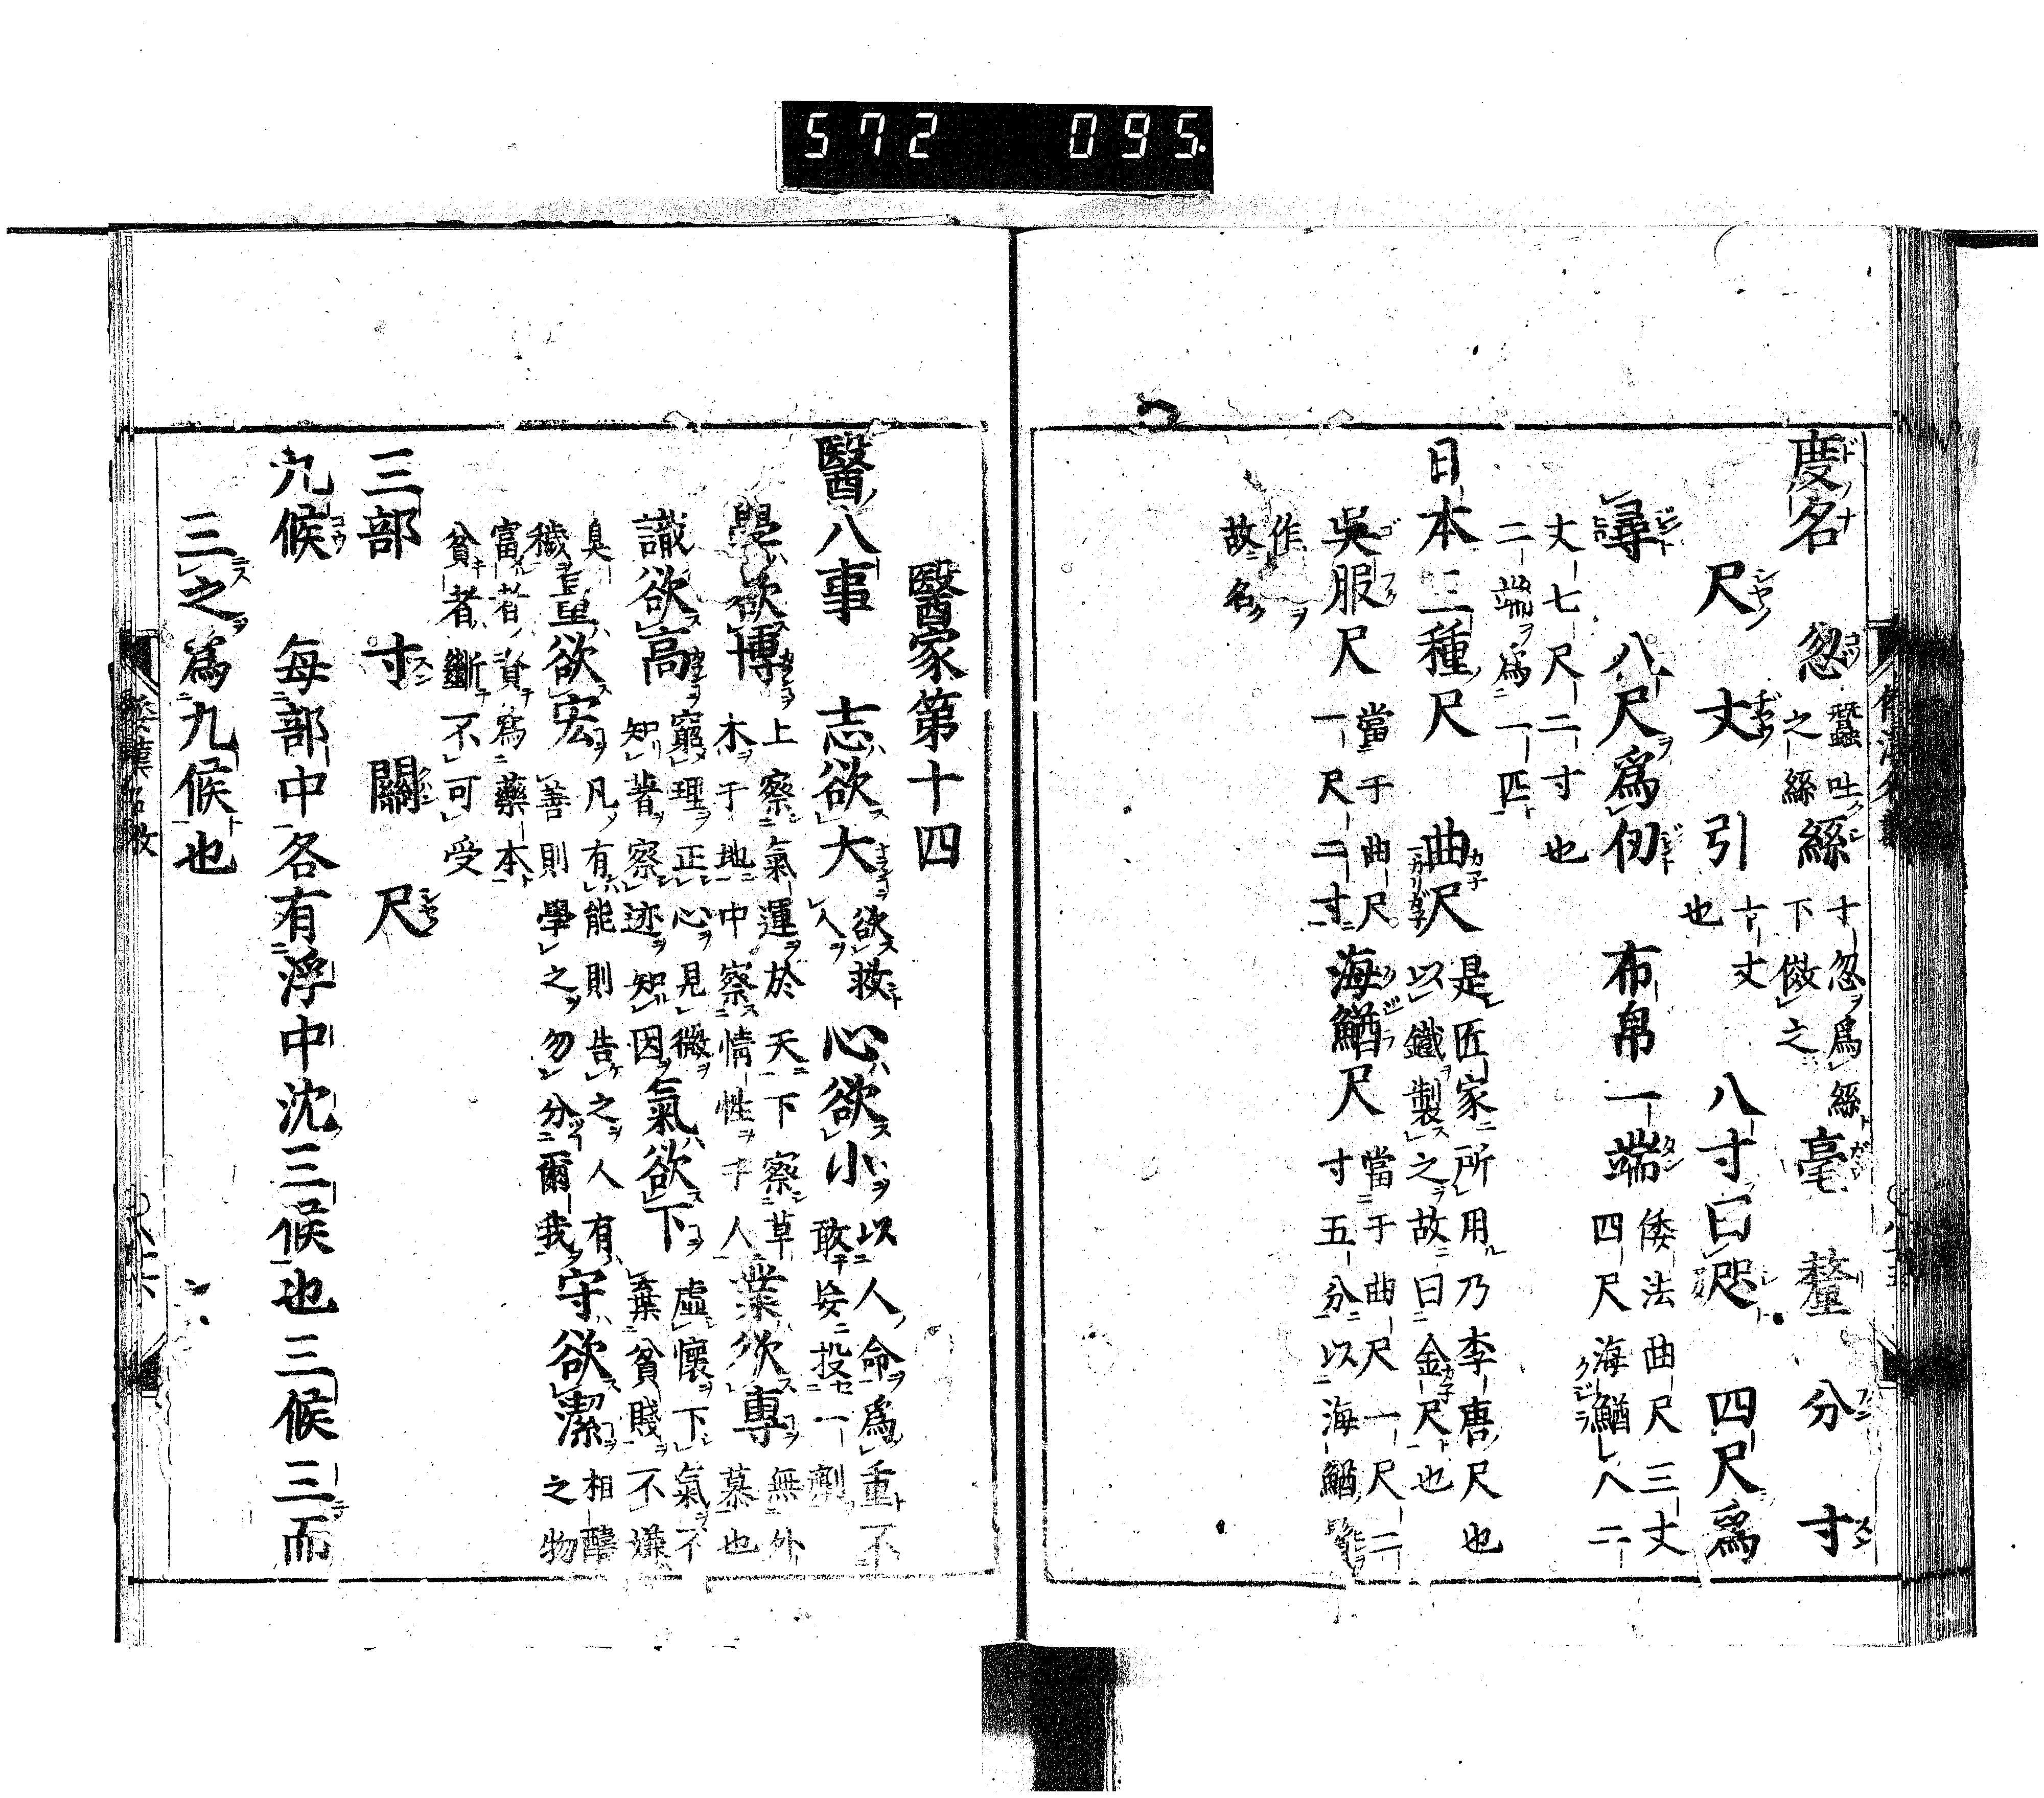 572 095
度名 忽 蠶吐之絲 絲 十忽爲絲下倣之 毫 釐 分 寸
尺 丈 引 十丈也 八寸曰咫 四尺爲
尋 八尺爲仞 布帛一端 倭法曲尺三丈四尺海鰌尺二
丈七尺二寸也
二端爲一匹
日本三種尺 曲尺 是匠家所用乃李唐尺也以鐵製之故曰金尺也
吳服尺 當于曲尺一尺二寸 海鰌尺 當于曲尺一尺二寸五分以海鰌
作
故名
醫家第十四
醫八事 志欲大 欲救人 心欲小 以人命爲重不敢妄投一劑
學欲博 上察氣運於天下察草木于地中察情性于人 業欲專 無外慕也
識欲高 窮理正心見微知著察迹知因 氣欲下 虛懷下氣不棄貧賤不嫌
臭穢 量欲宏 凡有能則告之人有善則學之勿分爾我 守欲潔 相醻之物
富者資爲藥本
貧者斷不可受
三部 寸 關 尺
九候 每部中各有浮中沈三候也三候三而
三之爲九候也
倭漢名數